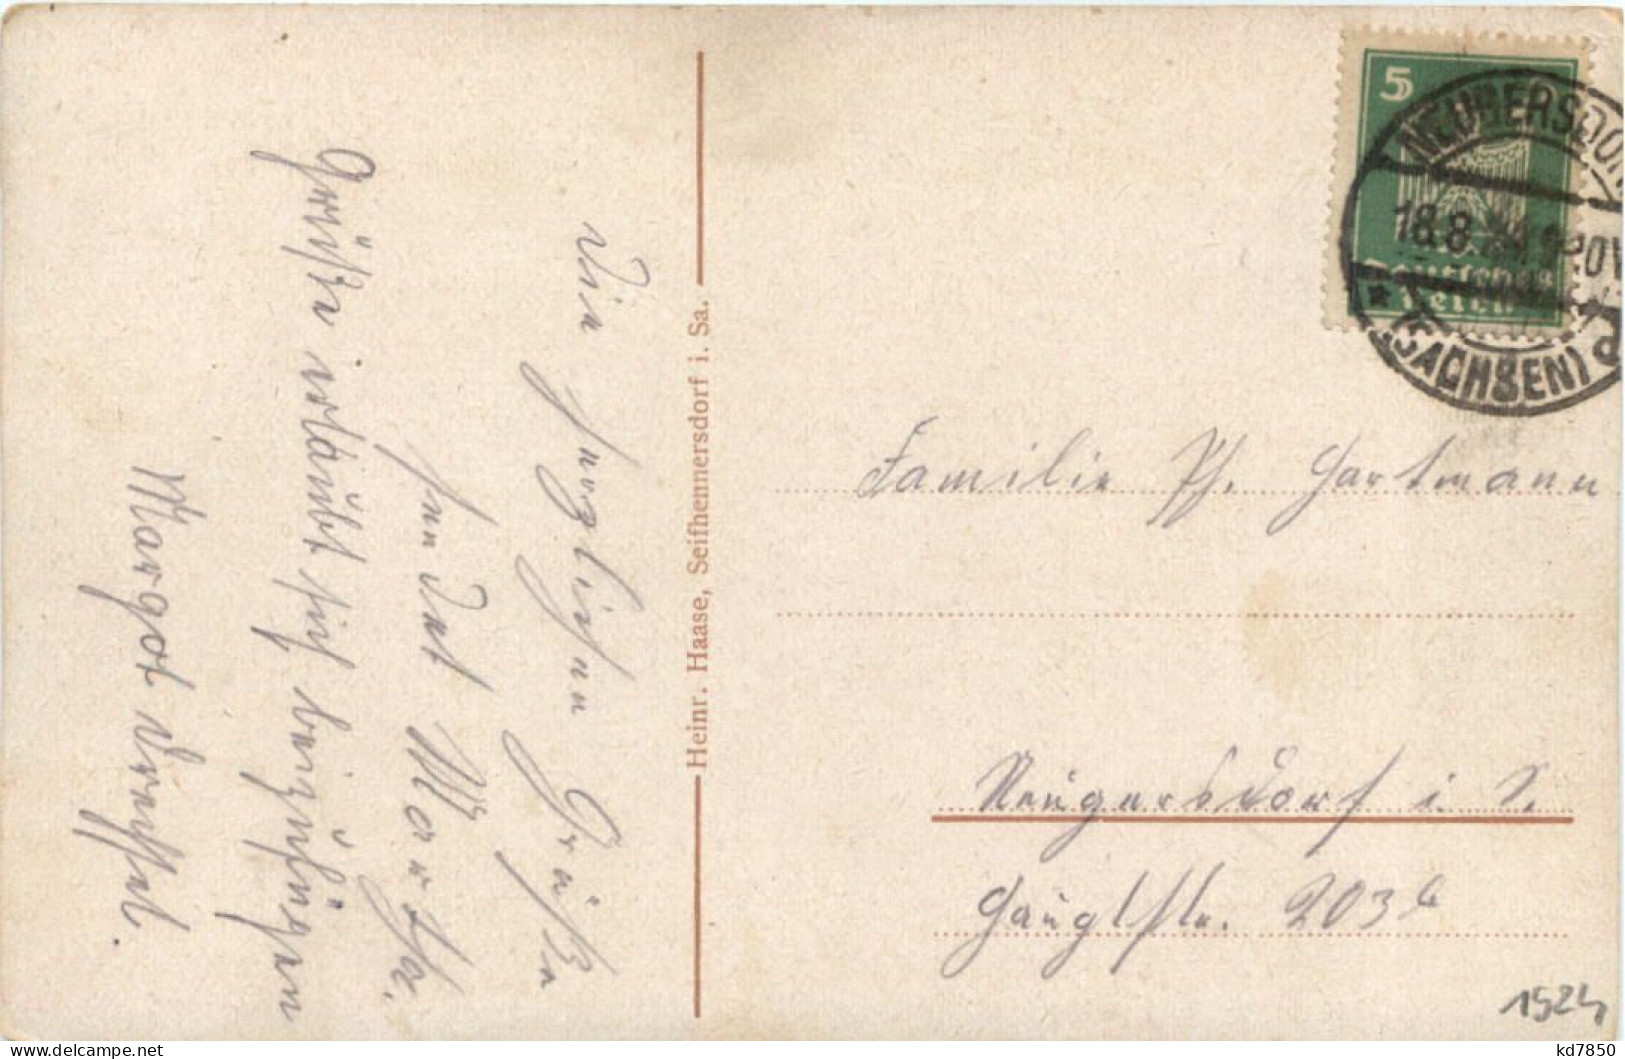 Die herzlichsten Grüße
sendet Martha.
Grüße erlaubt sich beizufügen
Margot
Heinr. Haase, Seifhennersdorf i. Sa.
5
Deutsches
Reich
NEUGERSDORF
18.8.
(SACHSEN)
Familie Hartmann
Neugersdorf i. S.
Hauptstr. 203b
1924
kd7850